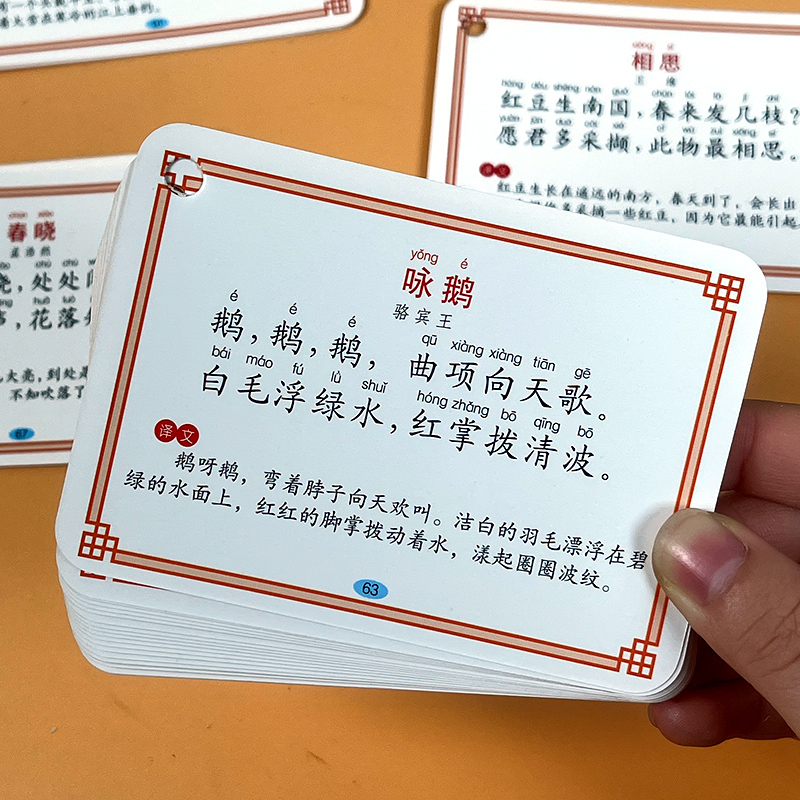 着太常在寒冷的江上垂的。
61
xiāng sī
相思
王 维
hóng dòu shēng nán guó chūn lái fā jǐ zhī
红豆生南国，春来发几枝？
yuàn jūn duō cǎi xié cǐ wù zuì xiāng sī
愿君多采撷，此物最相思。
译文
红豆生长在遥远的南方，春天到了，会长出
多采摘一些红豆，因为它最能引起
春晓
孟浩然
晓，处处
chù chù
声，花落
huā luò
大亮，到处是
不知吹落了
67
yǒng é
咏鹅
骆宾王
é é é qū xiàng xiàng tiān gē
鹅，鹅，鹅，曲项向天歌。
bái máo fú lǜ shuǐ hóng zhǎng bō qīng bō
白毛浮绿水，红掌拨清波。
译文
鹅呀鹅，弯着脖子向天欢叫。洁白的羽毛漂浮在碧
绿的水面上，红红的脚掌拨动着水，漾起圈圈波纹。
63